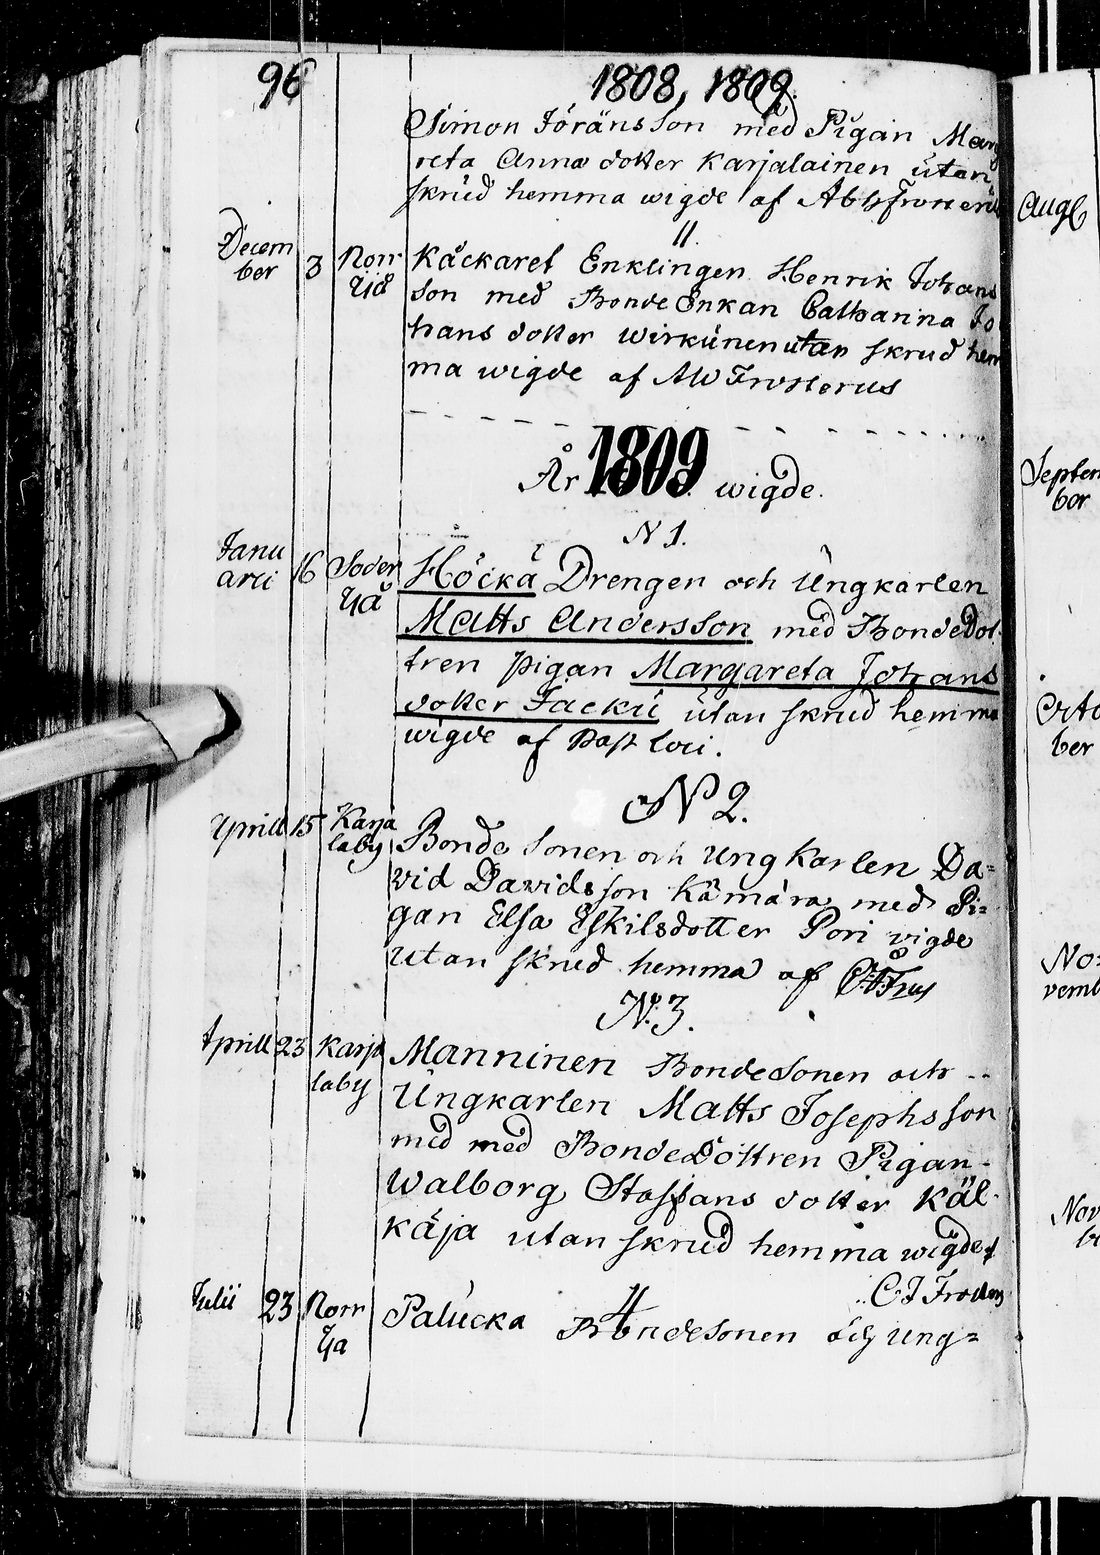 96
1808, 1809.
Simon Jöränsson med Pigan Marg
reta Anna dotter Karjalainen utan
skrud hemma wigde af
11.
Decem
ber 3 Norr
Ijå
Käckaret Enklingen Henrik Johans
son med Bonde Enkan Catharina Jo
hans dotter Wirkunen utan skrud hem
ma wigde af AW Frosterus
År 1809 wigde.
N 1.
Janu
arii 16 Soder
Ijå
Höckä Drengen och Ungkarlen
Matts Andersson med BondeDot
tren pigan Margareta Johans
dotter Jackù utan skrud hemma
wigde af Past loci.
N 2.
Aprill 15 Karja
laby
Bonde sonen och Ungkarlen Da=
vid Davidsson Kämärä med Pi=
gan Elsa Eskilsdotter Pori vigde
utan skrud hemma af
N:3.
Aprill 23 Karja
laby
Manninen Bondesonen och --
Ungkarlen Matts Josephsson
med med BondeDottren Pigan
Walborg Staffans dotter Käl-
käjä utan skrud hemma wigde af
CJ Frosterus
4
Julii 23 Norr
Ija
Palucka Bondesonen och Ung=
Aug
Septem
ber
Octo
ber
No=
vemb
Nov
b